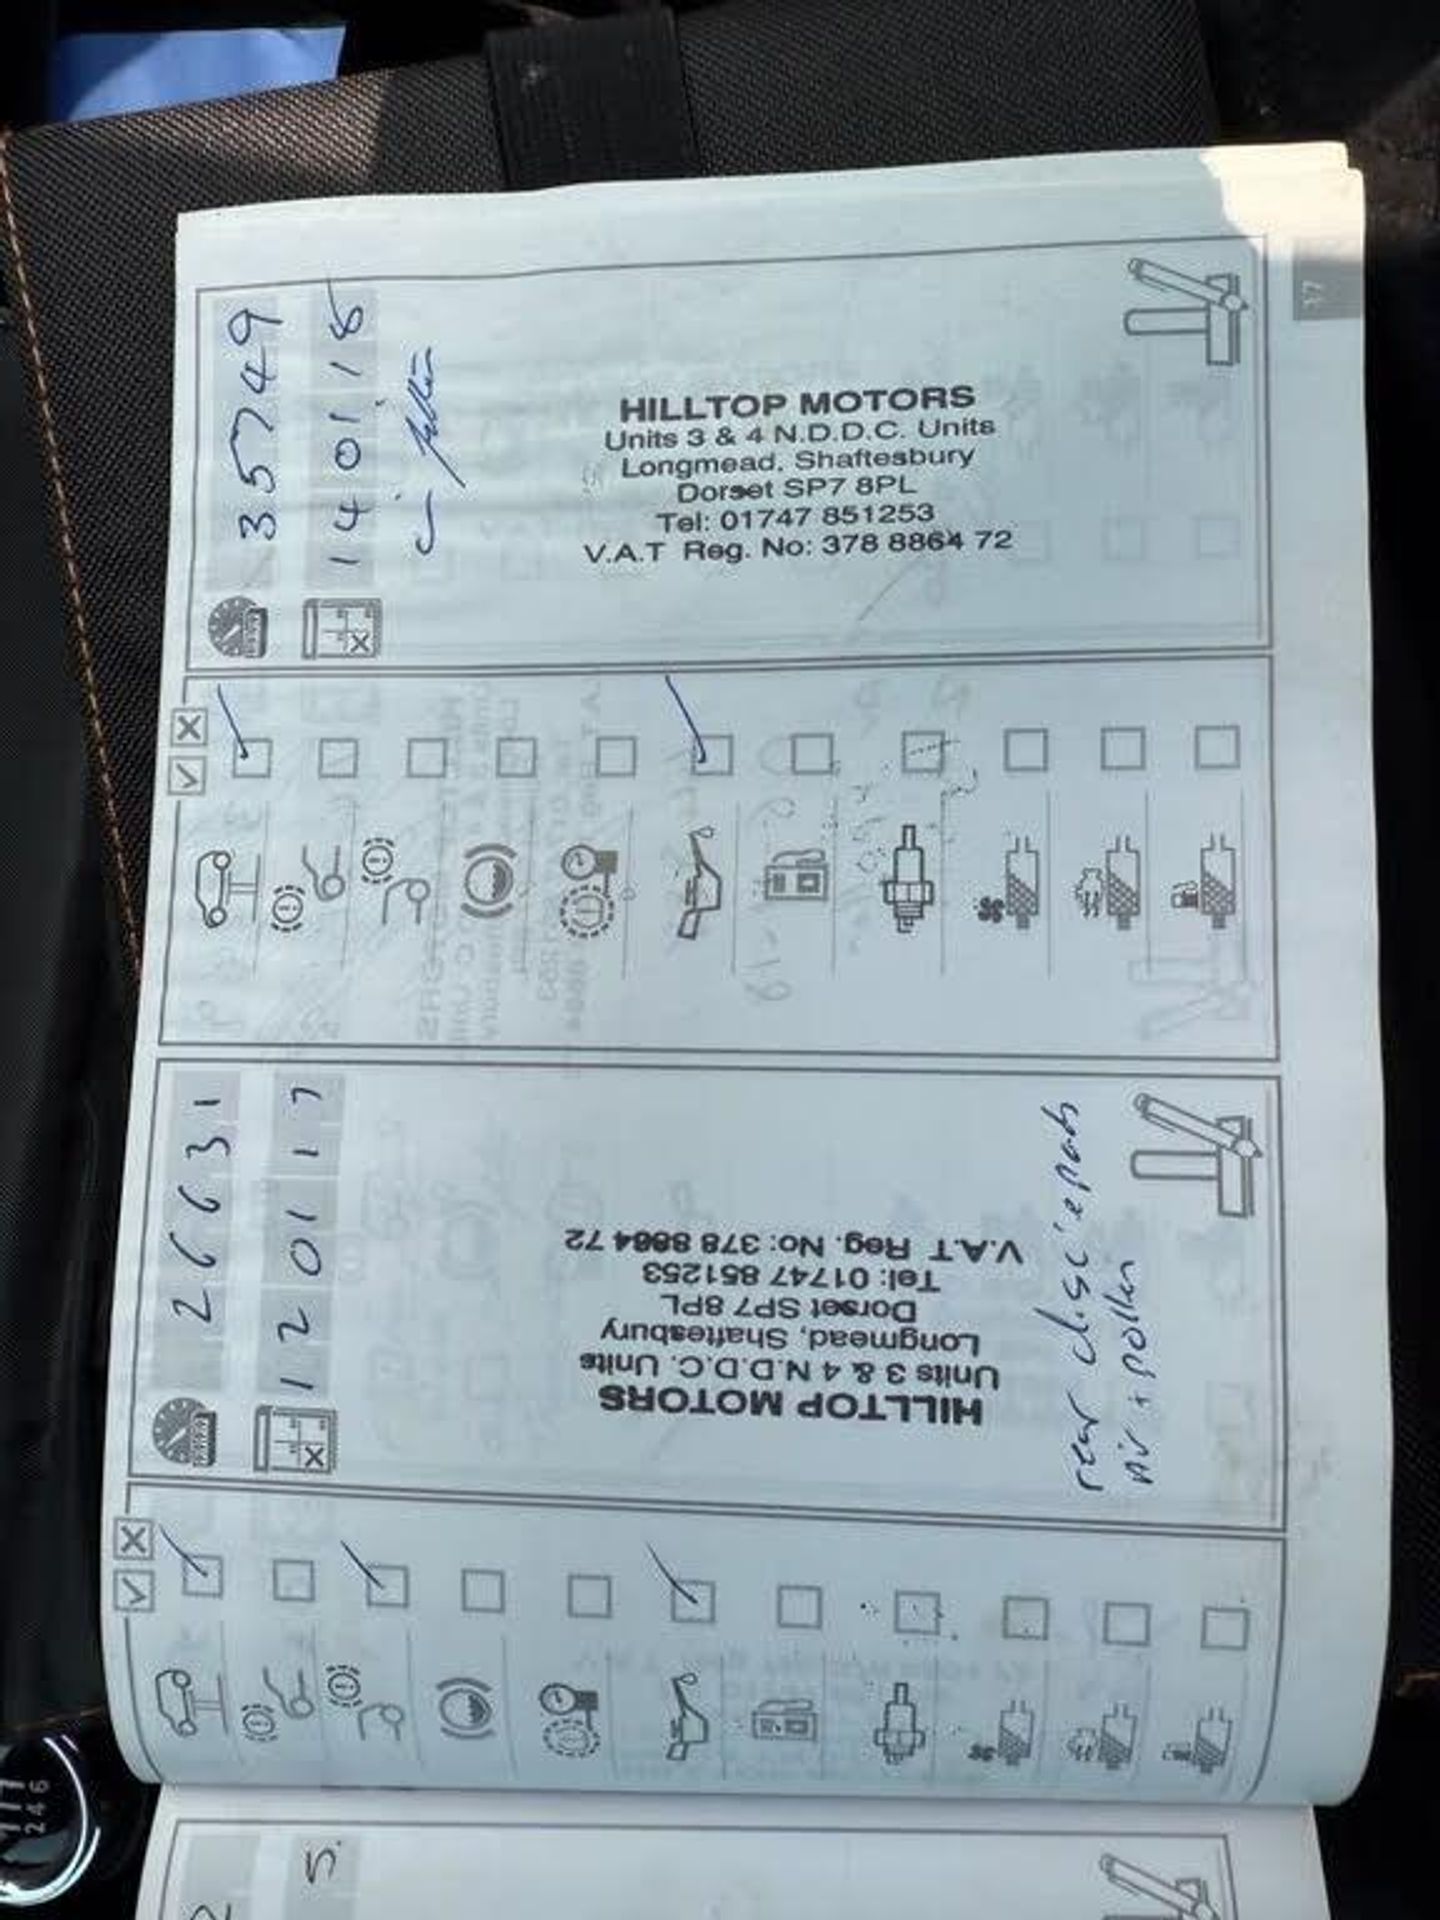 26631
120117
HILLTOP MOTORS
Units 3 & 4 N.D.D.C. Units
Longmead, Shaftesbury
Dorset SP7 8PL
Tel: 01747 851253
V.A.T Reg. No: 378 8864 72
rear disc's e pads
Air + pollen
35749
140118
HILLTOP MOTORS
Units 3 & 4 N.D.D.C. Units
Longmead, Shaftesbury
Dorset SP7 8PL
Tel: 01747 851253
V.A.T Reg. No: 378 8864 72
17
246
5.